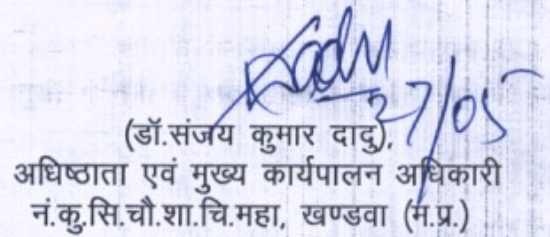 27/05
(डॉ.संजय कुमार दादु),
अधिष्ठाता एवं मुख्य कार्यपालन अधिकारी
नं.कु.सि.चौ.शा.चि.महा, खण्डवा (म.प्र.)